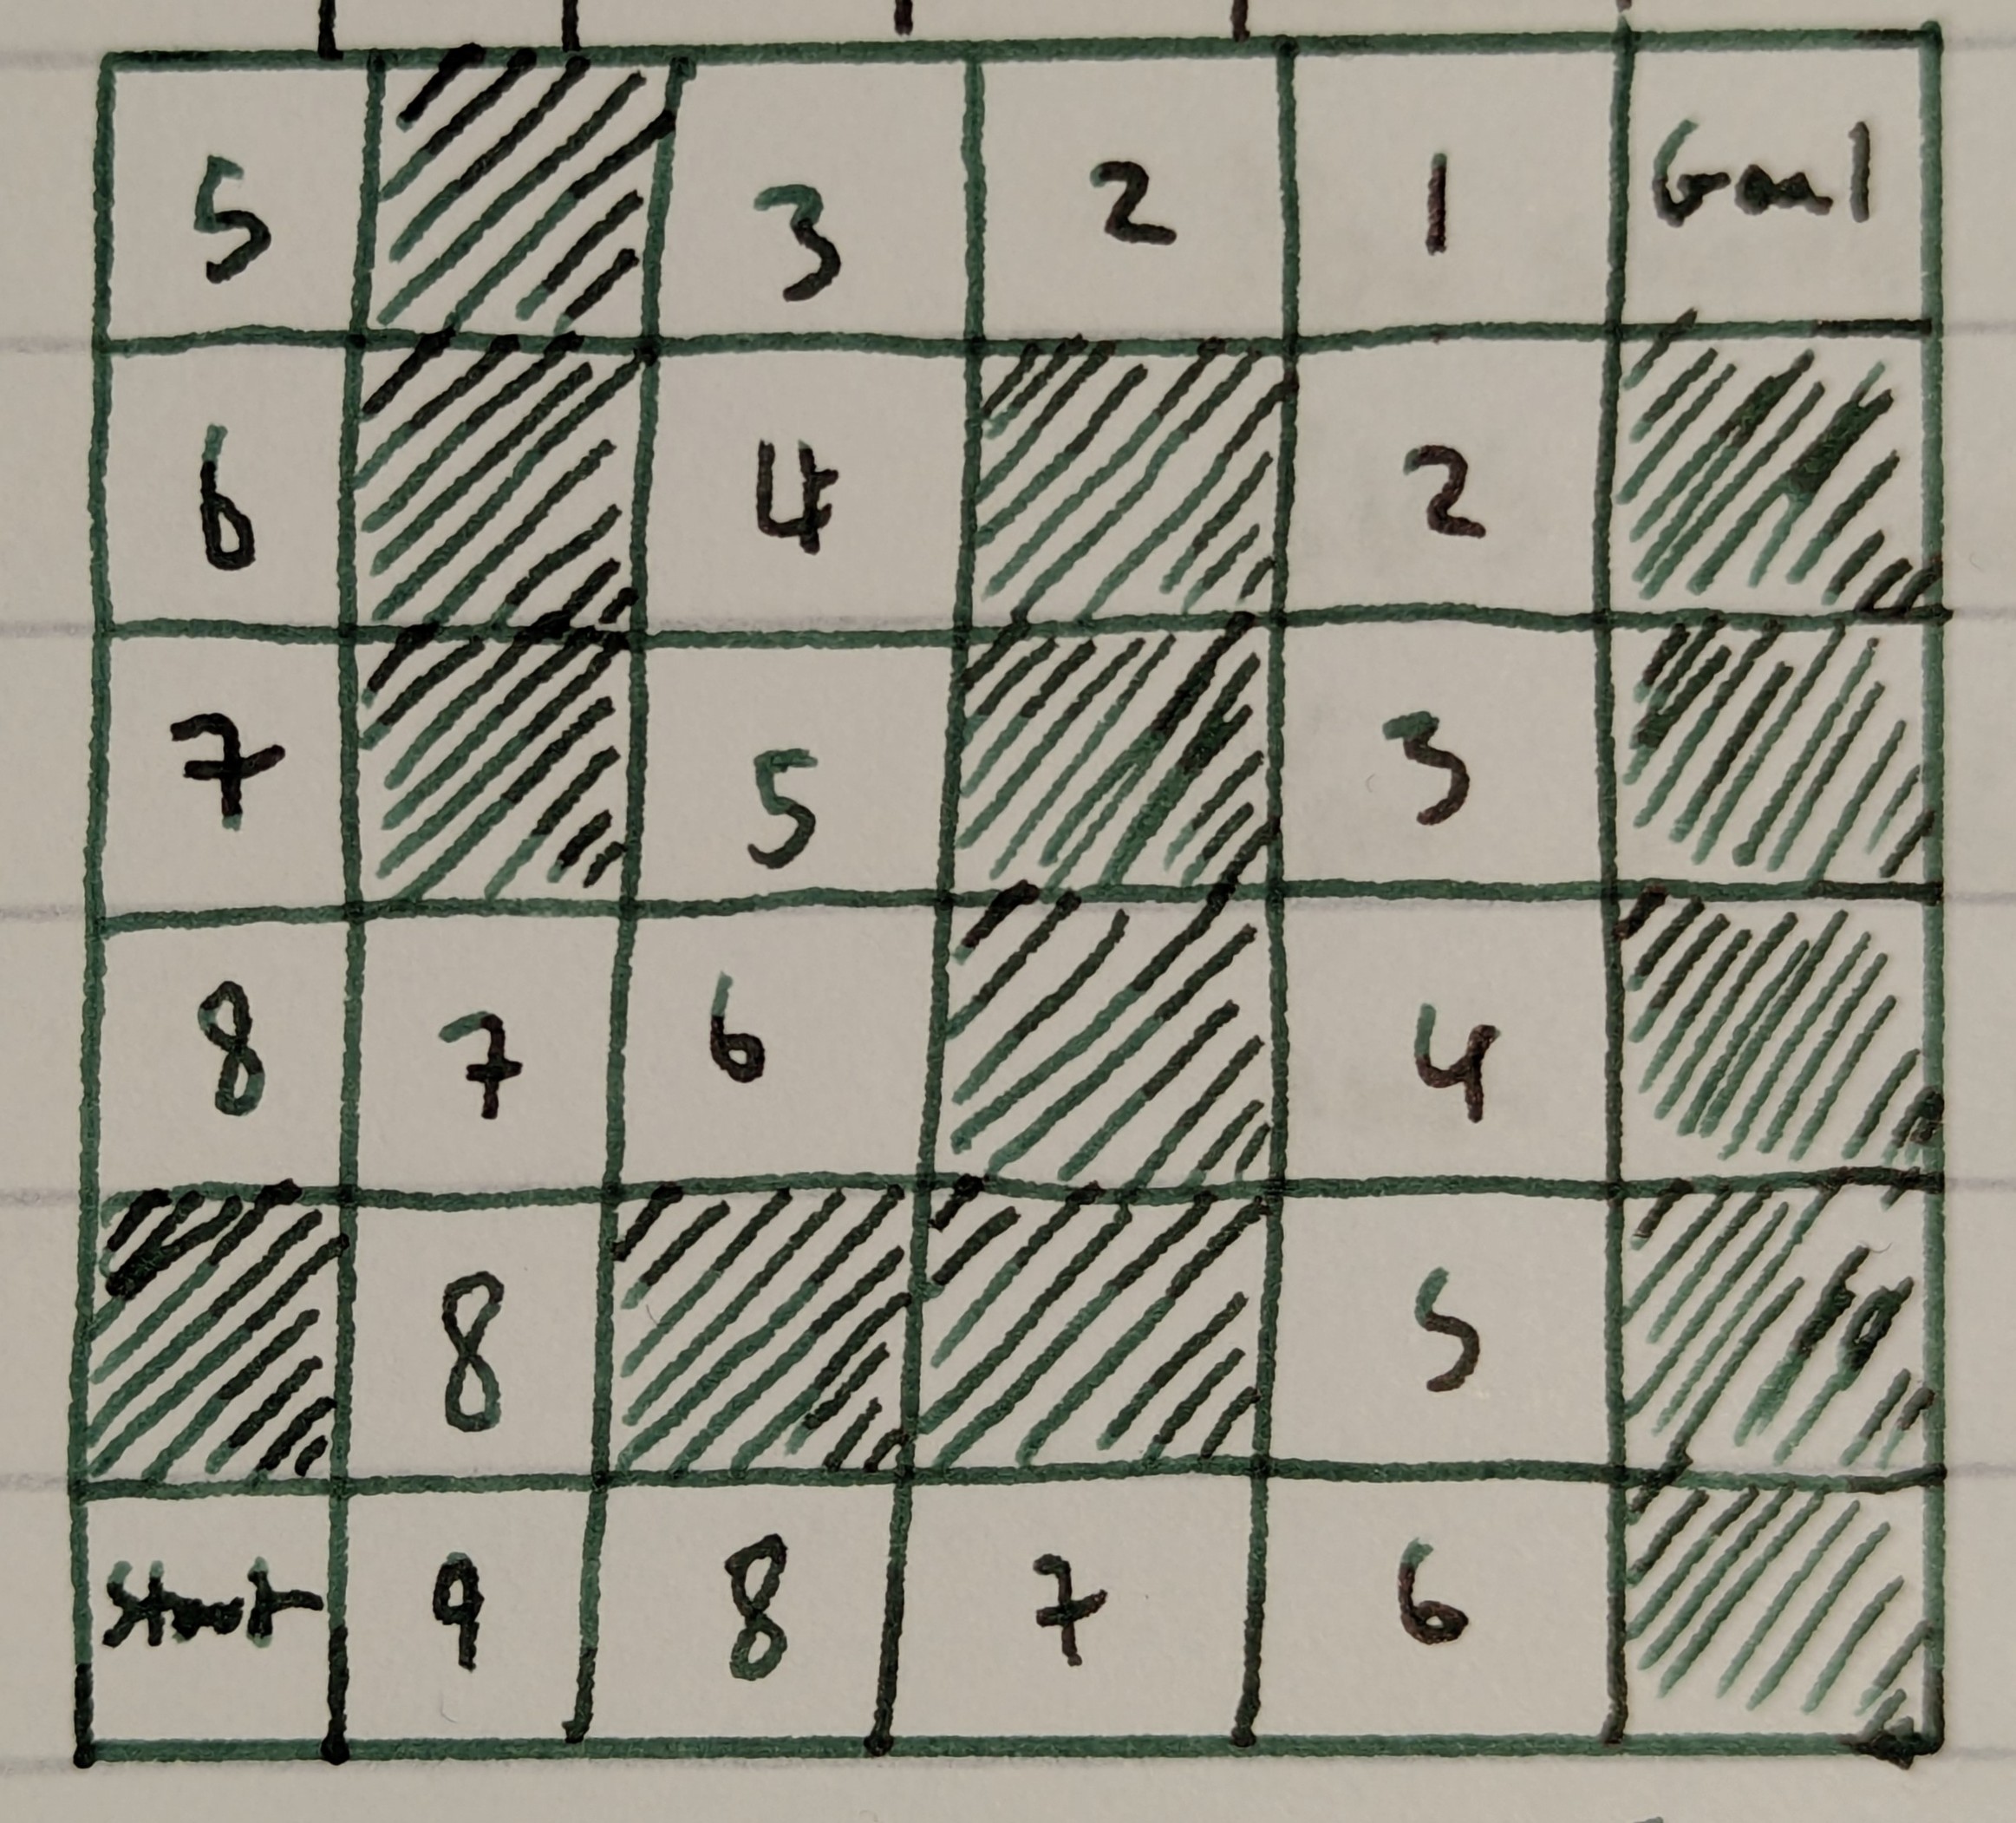 5 3 2 1 Goal
6 4 2
7 5 3
8 7 6 4
8 5
Start 9 8 7 6